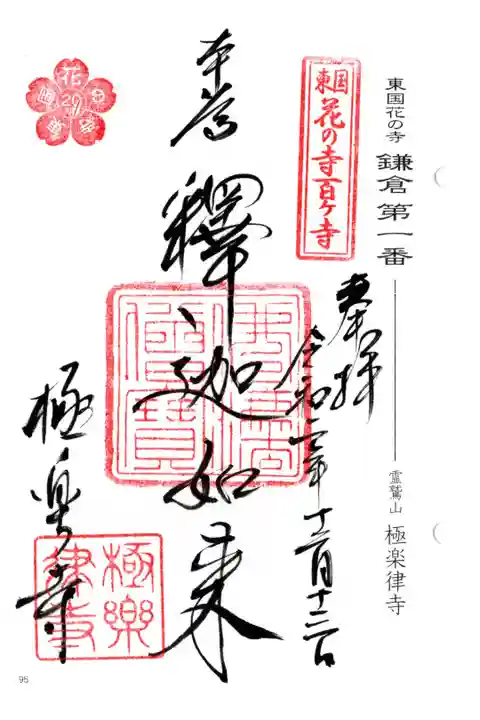 東国花の寺 鎌倉第一番
霊鷲山 極楽律寺
東国
花の寺百ケ寺
奉拝
令和二年十二月十三日
本尊
釋迦如来
極楽寺
佛法僧寶
極樂
律寺
花
20
95